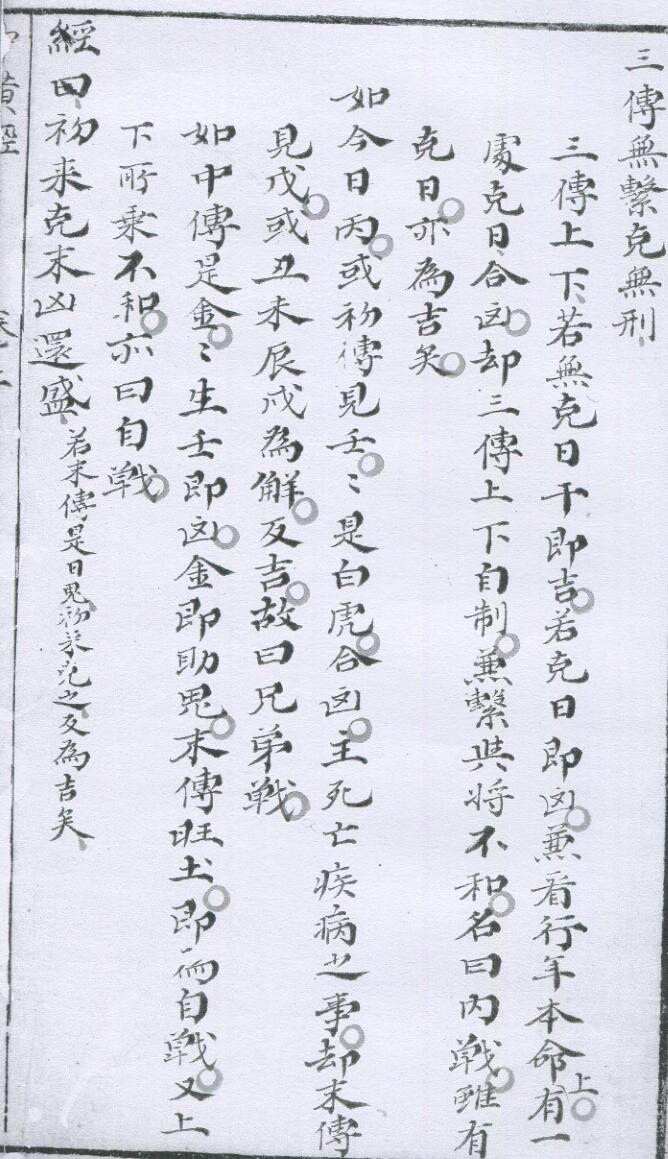 三傳無繫克無刑
三傳上下若無克日干即吉若克日即凶兼看行年本命上有一
處克日合凶却三傳上下自制兼繫與将不和名曰内戰雖有
克日亦為吉矣
如今日丙或初傳見壬〻是白虎合凶主死亡疾病之事却末傳
見戊或丑未辰戌為解反吉故曰兄弟戰
如中傳是金〻生壬即凶金即助鬼末傳旺土即為自戰又上
下所乗不和亦曰自戰
經曰初来克末凶還盛若末傳是日鬼初来克之反為吉矣
黄經